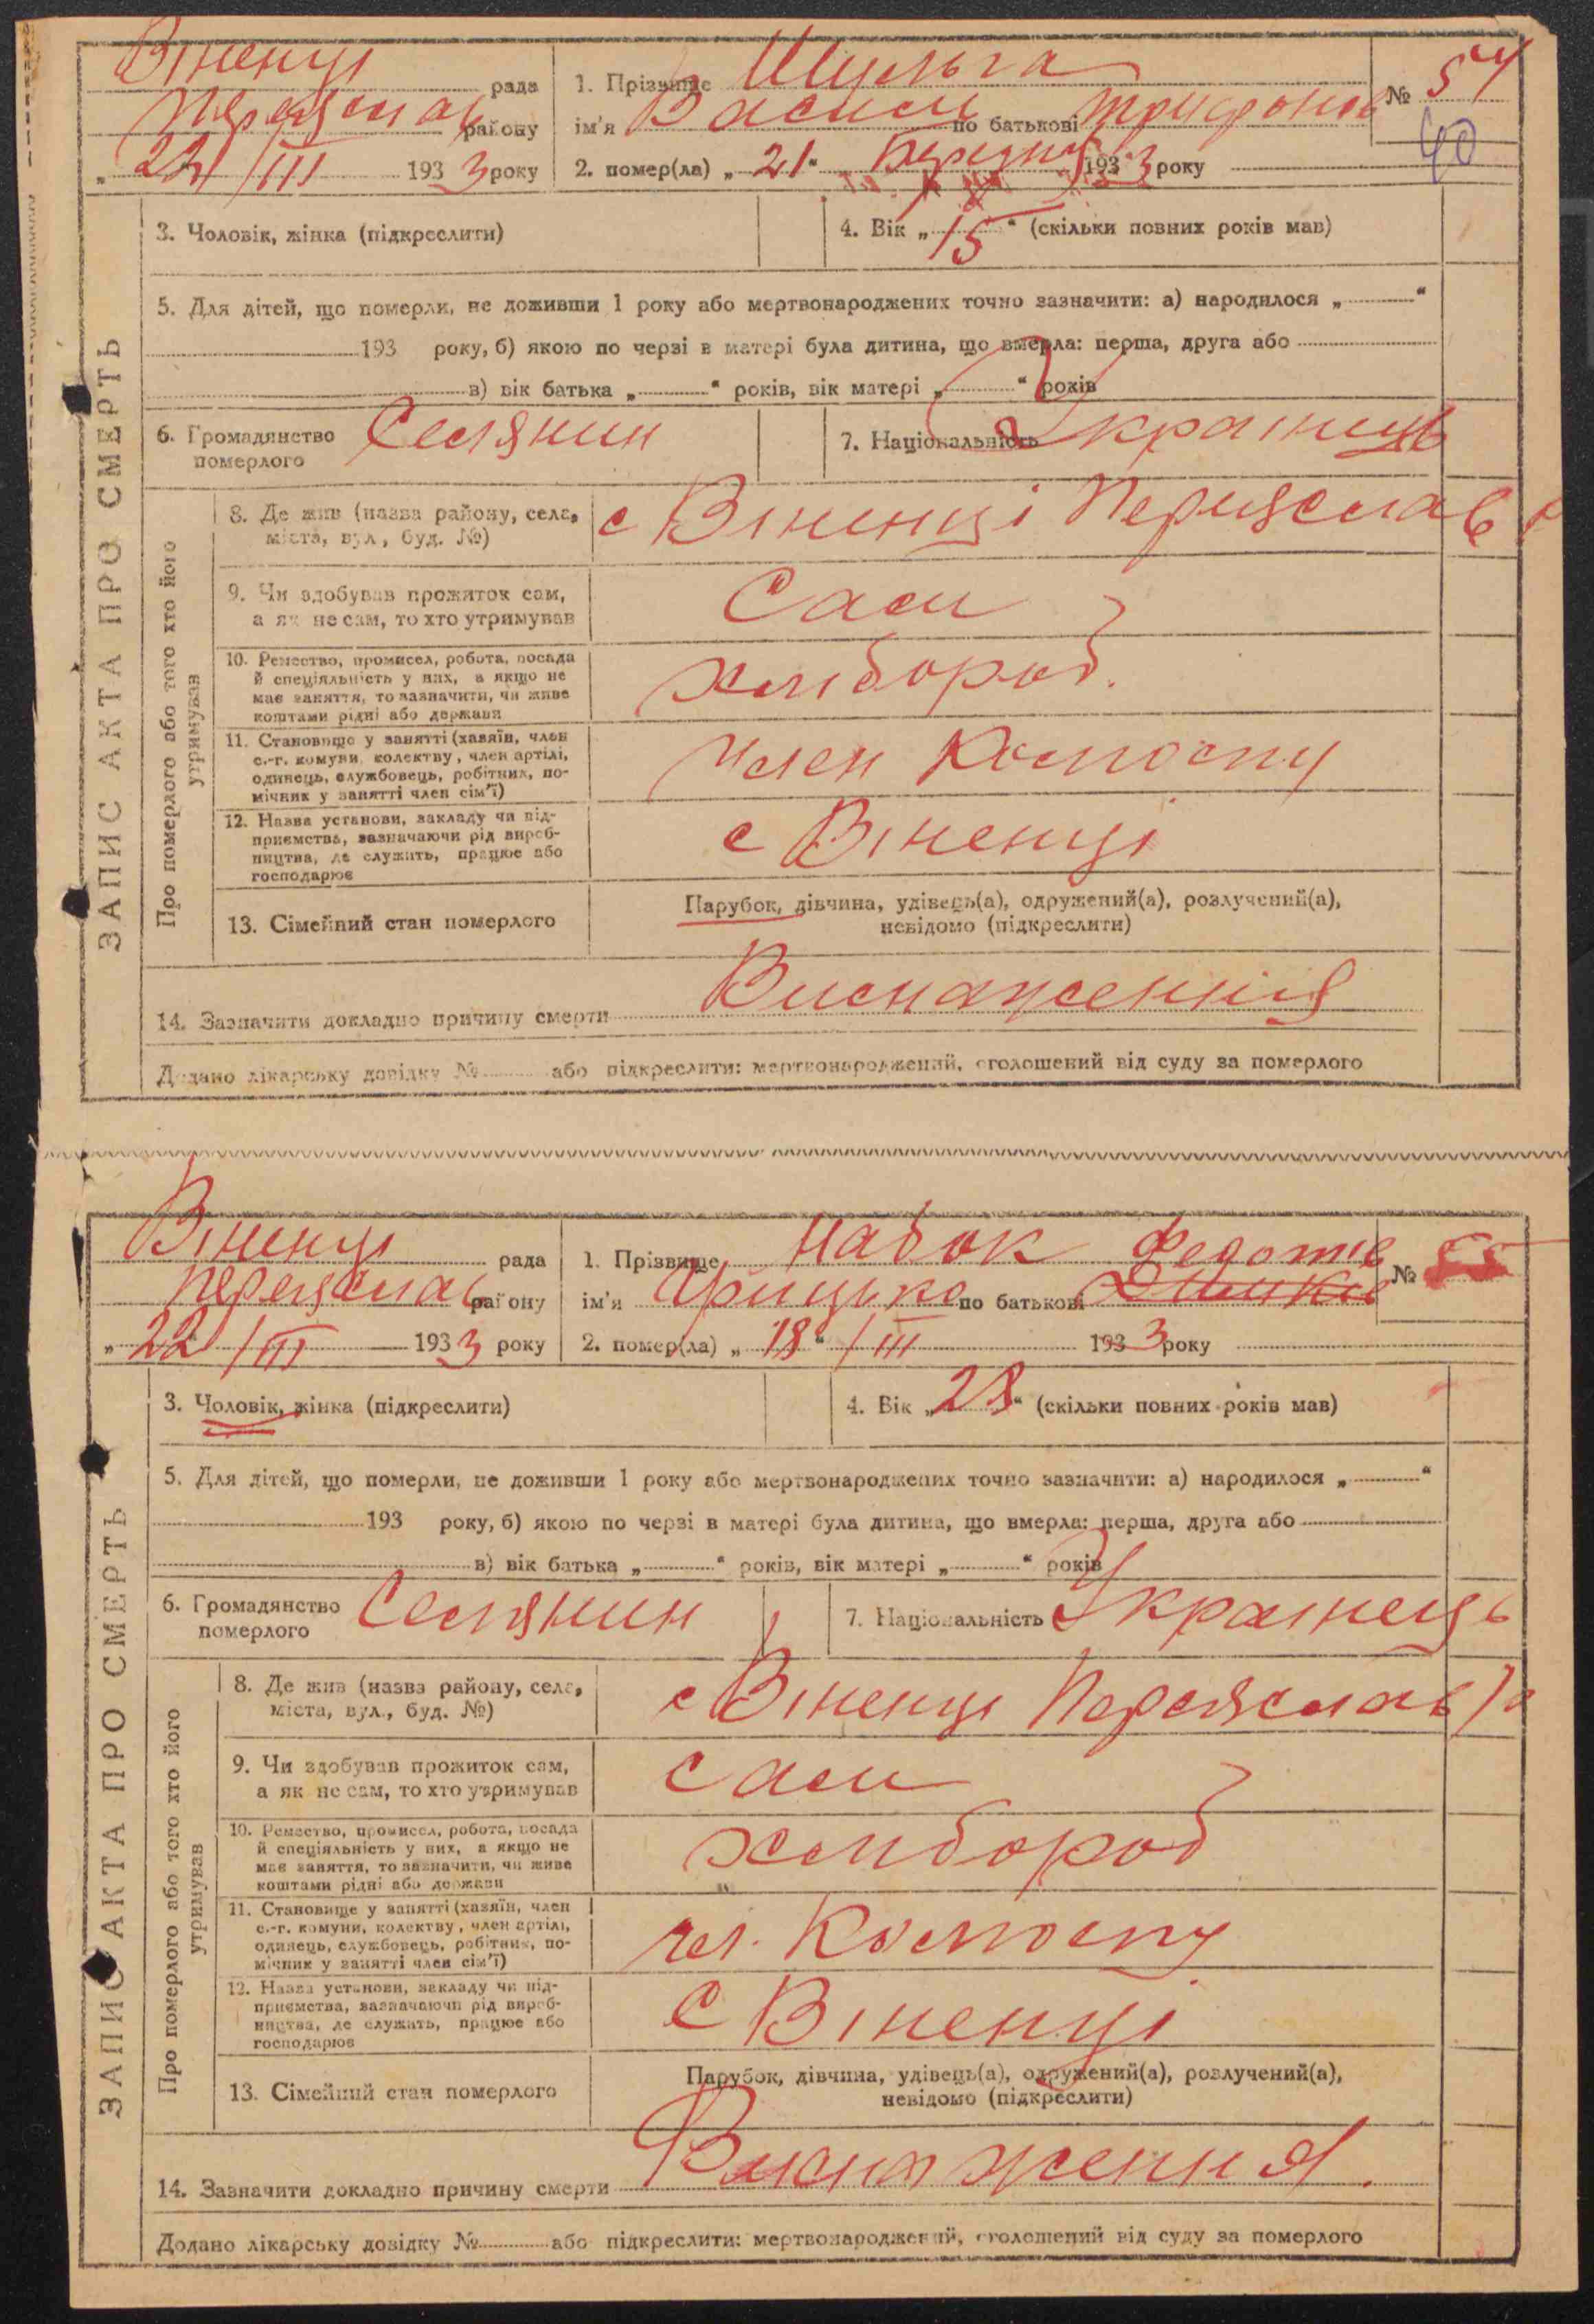 ЗАПИС АКТА ПРО СМЕРТЬ
Віненці рада
Переяслав району
„22/III 1933 року
1. Прізвище Шульга
ім'я Василь по батькові Трифонов
2. помер(ла) „21“ Березня 1933 року
№ 54
40
3. Чоловік, жінка (підкреслити)
4. Вік „15“ (скільки повних років мав)
5. Для дітей, що померли, не доживши 1 року або мертвонароджених точно зазначити: а) народилося „ “
193 року, б) якою по черзі в матері була дитина, що вмерла: перша, друга або
в) вік батька „ “ років, вік матері „ “ років
6. Громадянство Селянин
померлого
7. Національність Украінець
Про померлого або того хто його
утримував
8. Де жив (назва району, села, с Віненці Переяслав
міста, вул., буд. №)
9. Чи здобував прожиток сам, Сам
а як не сам, то хто утримував
10. Ремество, промисел, робота, посада
й спеціяльність у них, а якщо не
має заняття, то зазначити, чи живе
коштами рідні або держави
хлибороб.
11. Становище у занятті (хазяїн, член
с.-г. комуни, колектву, член артілі,
одинець, службовець, робітник, по-
мічник у занятті член сім'ї)
член Колгоспу
12. Назва установи, закладу чи під-
приємства, зазначаючи рід вироб-
ництва, де служить, працює або
господарює
с Віненці
13. Сімейний стан померлого
Парубок, дівчина, удівець(а), одружений(а), розлучений(а),
невідомо (підкреслити)
14. Зазначити докладно причину смерти Виснаженнія
Додано лікарську довідку № або підкреслити: мертвонароджений, оголошений від суду за померлого
ЗАПИС АКТА ПРО СМЕРТЬ
Віненці рада
Переяслав району
„22/III 1933 року
1. Прізвище Набок Федотів
ім'я Грицько по батькові
2. помер(ла) „18“/III 1933 року
№ 55
3. Чоловік, жінка (підкреслити)
4. Вік „28“ (скільки повних років мав)
5. Для дітей, що померли, не доживши 1 року або мертвонароджених точно зазначити: а) народилося „ “
193 року, б) якою по черзі в матері була дитина, що вмерла: перша, друга або
в) вік батька „ “ років, вік матері „ “ років
6. Громадянство Селянин
померлого
7. Національність Украинець
Про померлого або того хто його
утримував
8. Де жив (назва району, села, с Віненці Переяслав
міста, вул., буд. №)
9. Чи здобував прожиток сам, сам
а як не сам, то хто утримував
10. Ремество, промисел, робота, посада
й спеціяльність у них, а якщо не
має заняття, то зазначити, чи живе
коштами рідні або держави
хлибороб
11. Становище у занятті (хазяїн, член
с.-г. комуни, колектву, член артілі,
одинець, службовець, робітник, по-
мічник у занятті член сім'ї)
чл. Колгоспу
12. Назва установи, закладу чи під-
приємства, зазначаючи рід вироб-
ництва, де служить, працює або
господарює
С Віненці
13. Сімейний стан померлого
Парубок, дівчина, удівець(а), одружений(а), розлучений(а),
невідомо (підкреслити)
14. Зазначити докладно причину смерти Виснаження.
Додано лікарську довідку № або підкреслити: мертвонароджений, оголошений від суду за померлого